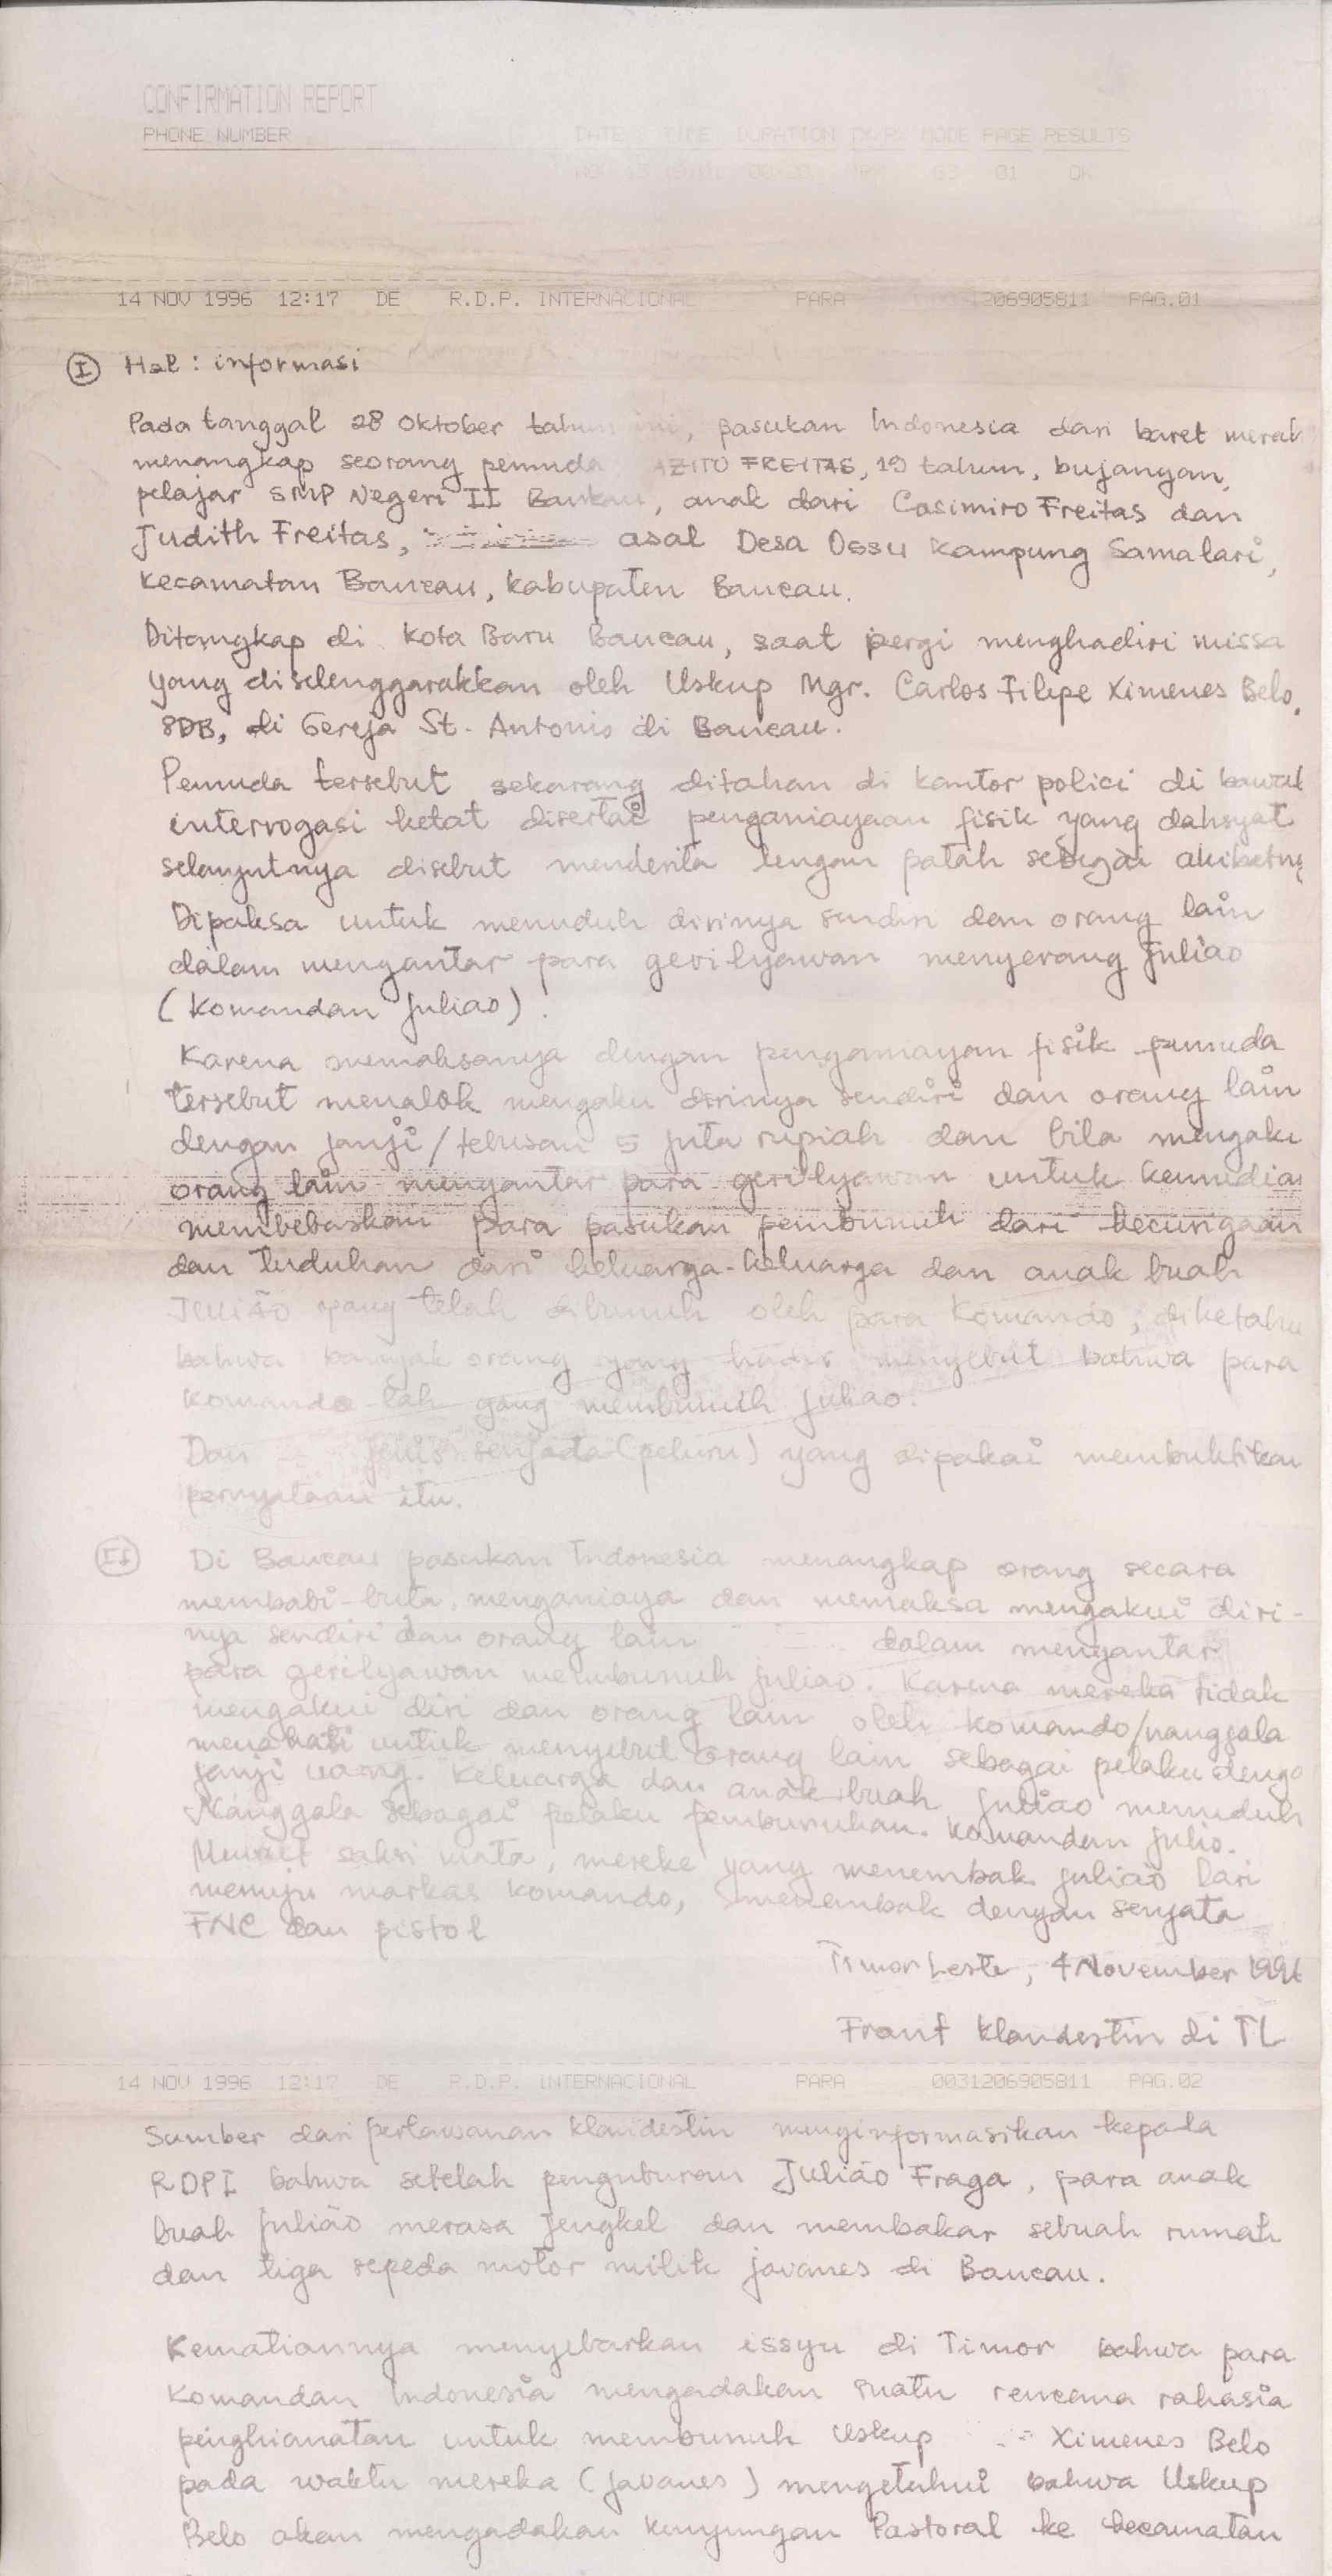 CONFIRMATION REPORT
PHONE NUMBER DATE TIME DURATION MODE PAGE RESULTS
01 OK
14 NOV 1996 12:17 DE R.D.P. INTERNACIONAL PARA 206905811 PAG.01
I Hal : informasi
Pada tanggal 28 Oktober tahun ini, pasukan Indonesia dari baret merah
menangkap seorang pemuda AZITO FREITAS, 19 tahun, bujangan,
pelajar SMP Negeri II Baukau, anak dari Casimiro Freitas dan
Judith Freitas, asal Desa Ossu Kampung Samalari,
Kecamatan Baucau, kabupaten Baucau.
Ditangkap di kota Baru Baucau, saat pergi menghadiri missa
yang diselenggarakkan oleh Uskup Mgr. Carlos Filipe Ximenes Belo,
SDB, di Gereja St. Antonio di Baucau.
Pemuda tersebut sekarang ditahan di kantor polici di bawah
interrogasi ketat disertai penganiayaan fisik yang dahsyat
selanjutnya disebut menderita lengan patah sebagai akibatny
Dipaksa untuk menuduh dirinya sendiri dan orang lain
dalam mengantar para gerilyawan menyerang Julião
(Komandan Juliao).
Karena memaksanya dengan penganiayan fisik pemuda
tersebut menalok mengaku dirinya sendiri dan orang lain
dengan janji/tebusan 5 juta rupiah dan bila mengaku
orang lain mengantar para gerilyawan untuk kemudian
membebaskan para pasukan pembunuh dari kecurigaan
dan tuduhan dari keluarga-keluarga dan anak buah
Julião yang telah dibunuh oleh para Komando, diketahu
bahwa banyak orang yang hadir menyebut bahwa para
Komando-lah yang membunuh Juliao.
Dan jenis senjata (peluru) yang dipakai membuktikan
pernyataan itu.
II Di Baucau pasukan Indonesia menangkap orang secara
membabi-buta, menganiaya dan memaksa mengakui diri-
nya sendiri dan orang lain dalam mengantar
para gerilyawan membunuh Juliao. Karena mereka tidak
mengakui diri dan orang lain oleh Komando/nanggala
untuk menyebut orang lain sebagai pelaku denga
janji uang. Keluarga dan anak buah Julião menuduh
Nanggala sebagai pelaku pembunuhan Komandan Julio.
saksi mata, mereke yang menembak Julião lari
menuju markas Komando, menembak dengan senjata
FNC dan pistol
Timor Leste, 4 November 1996
Front Klandestin di TL
14 NOV 1996 12:17 DE R.D.P. INTERNACIONAL PARA 0031206905811 PAG.02
Sumber dari perlawanan klandestin menginformasikan kepada
RDPI bahwa setelah penguburan Julião Fraga, para anak
buah Julião merasa jengkel dan membakar sebuah rumah
dan tiga sepeda motor milik javanes di Baucau.
Kematiannya menyebarkan issyu di Timor bahwa para
Komandan Indonesia mengadakan suatu rencana rahasia
penghianatan untuk membunuh Uskup Ximenes Belo
pada waktu mereka (javanes) mengetahui bahwa Uskup
Belo akan mengadakan kunjungan Pastoral ke kecamatan